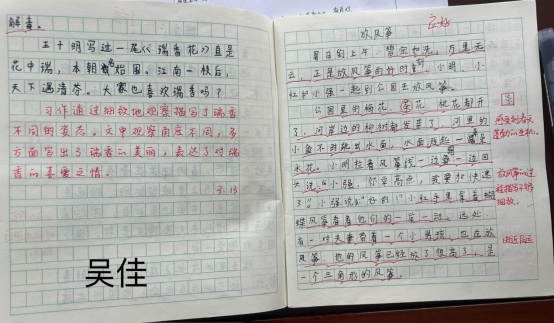 解毒。
王十明写过一尾《瑞香花》真是
花中瑞,本朝名始闻。江南一枝后,
天下遇清芬。大家也喜欢瑞香吗?
习作通过细致地观察描写了瑞香
不同的姿态。文中观察角度不同,多
方面写出了瑞香的美丽,表达了对瑞
香的喜爱之情。
3.13
吴佳
放风筝
夏日的上午,晴空如洗,万里无
云,正是放风筝的好时节。小明、小
红和小强一起到公园去放风筝。
公园里的梅花、梨花、桃花都开
了,河岸边的柳树都发芽了,河里的
小鱼不时跳出水面,水面溅起一
水花。小明拉着风筝线一边跑一边回
头说:"小强,你拿高点,我要加快速
了"小强说:"好的!"小红手里拿着蝴
蝶风筝看着他们的一举一动。远处
有一对夫妻带着一个小男孩,也在放
风筝,他的风筝已经放了很高了,是
一个三角形的风筝。
放风筝的过
程描写不够
细致。
由近及远